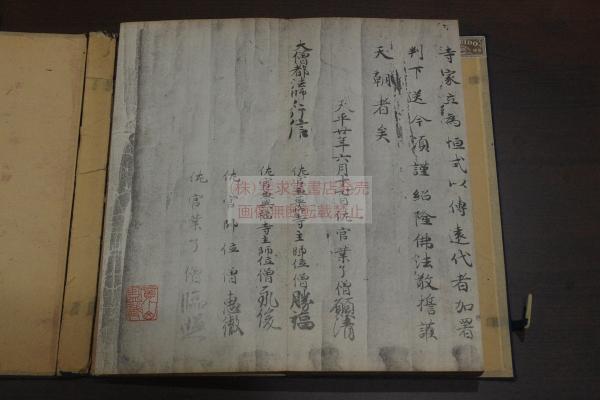 寺家立為恒式以傳遠代者加署
判下送今須謹紹隆佛法敬擔護
天朝者矣
天平廿年六月十七日佐官業了僧願清
大僧都法師行信
佐官兼薬師寺主師位僧勝福
佐官兼興福寺主師位僧永俊
佐官師位僧惠徹
佐官業了僧臨照
(株)其求堂書店専売
画像無断転載禁止